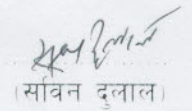 (सविन दुलाल)